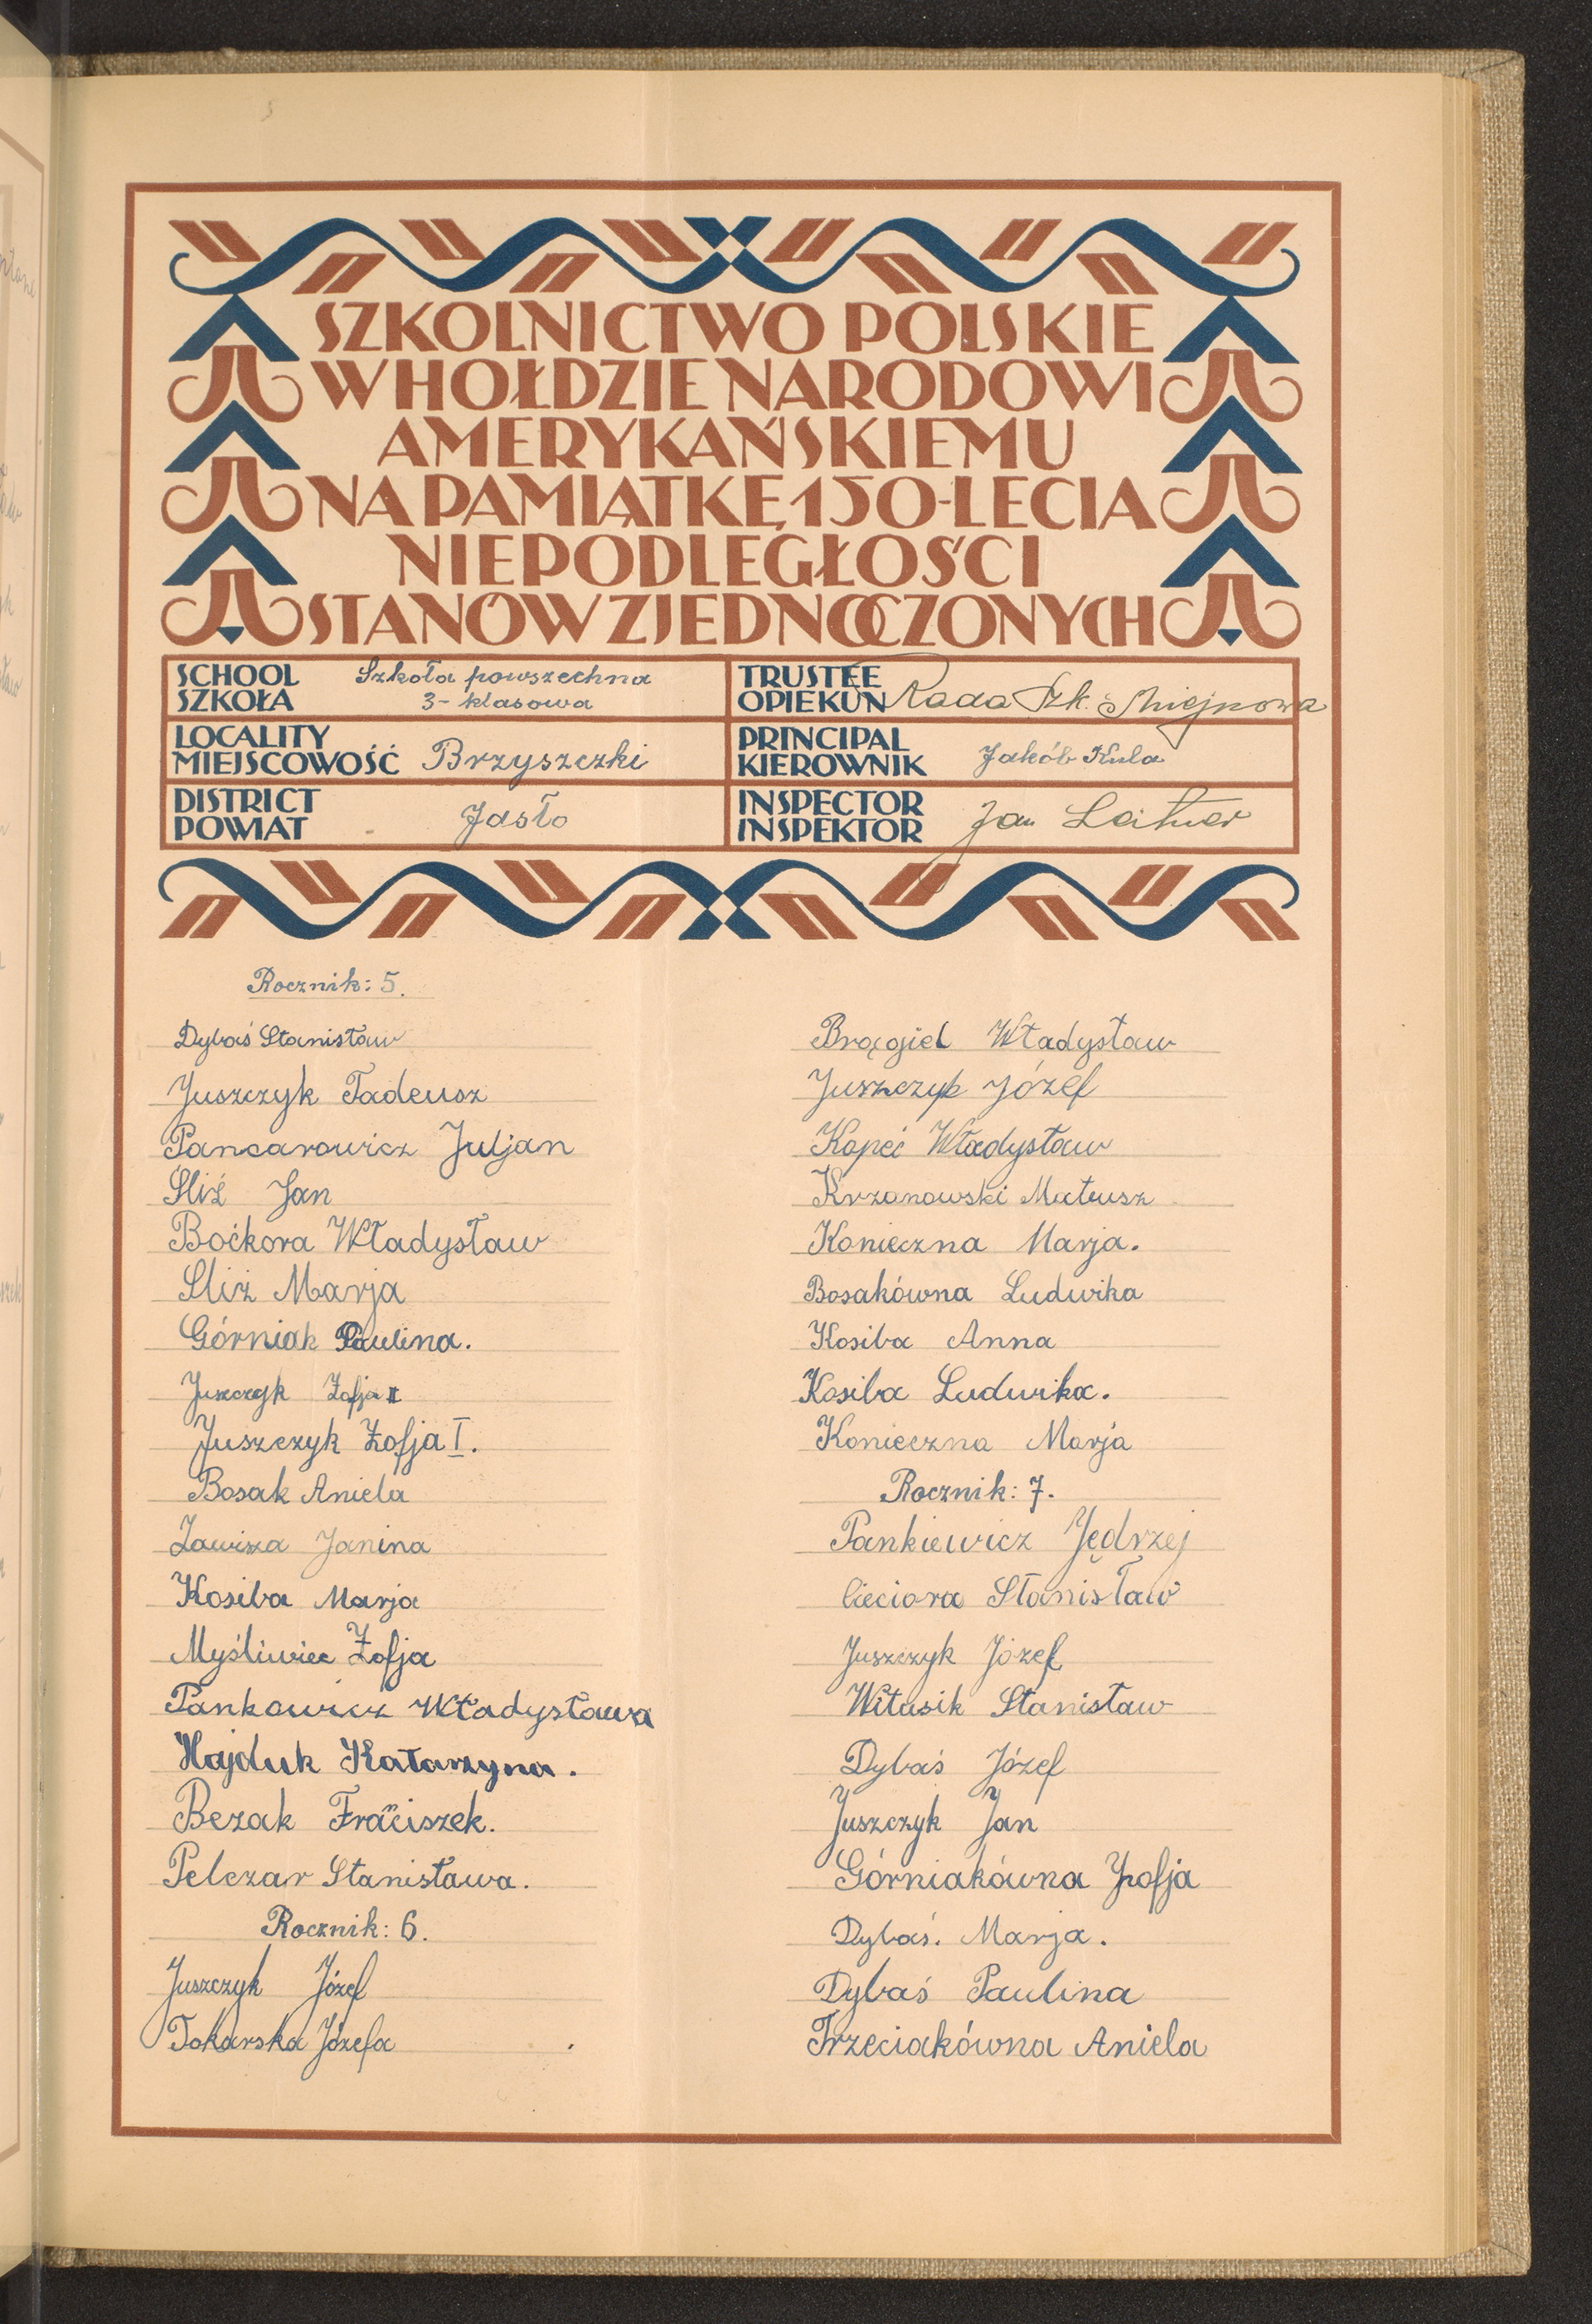 SZKOLNICTWO POLSKIE
W HOŁDZIE NARODOWI
AMERYKAŃSKIEMU
NA PAMIĄTKĘ 150-LECIA
NIEPODLEGŁOŚCI
STANÓW ZJEDNOCZONYCH
SCHOOL
SZKOŁA
Szkoła powszechna
3-klasowa
TRUSTEE
OPIEKUN
Rada Szk. Miejscowa
LOCALITY
MIEJSCOWOŚĆ
Brzyszczki
PRINCIPAL
KIEROWNIK
Jakób Kula
DISTRICT
POWIAT
Jasło
INSPECTOR
INSPEKTOR
Jan Leitner
Rocznik: 5.
Dybaś Stanisław
Juszczyk Tadeusz
Pancarowicz Juljan
Śliź Jan
Boćkora Władysław
Śliż Marja
Górniak Paulina.
Juszczyk Zofja II
Juszczyk Zofja I.
Bosak Aniela
Zawisza Janina
Kosiba Marja
Myśliwiec Zofja
Pankowicz Władysława
Hajduk Katarzyna.
Bezak Franciszek.
Pelczar Stanisława.
Rocznik: 6.
Juszczyk Józef
Tokarska Józefa
Brągiel Władysław
Juszczyk Józef
Kopeć Władysław
Krzanowski Mateusz
Konieczna Marja.
Bosakówna Ludwika
Kosiba Anna
Kosiba Ludwika.
Konieczna Marja
Rocznik: 7.
Pankiewicz Jędrzej
Cieciora Stanisław
Juszczyk Józef
Witusik Stanisław
Dybaś Józef
Juszczyk Jan
Górniakówna Zofja
Dybaś. Marja.
Dybaś Paulina
Trzeciakówna Aniela